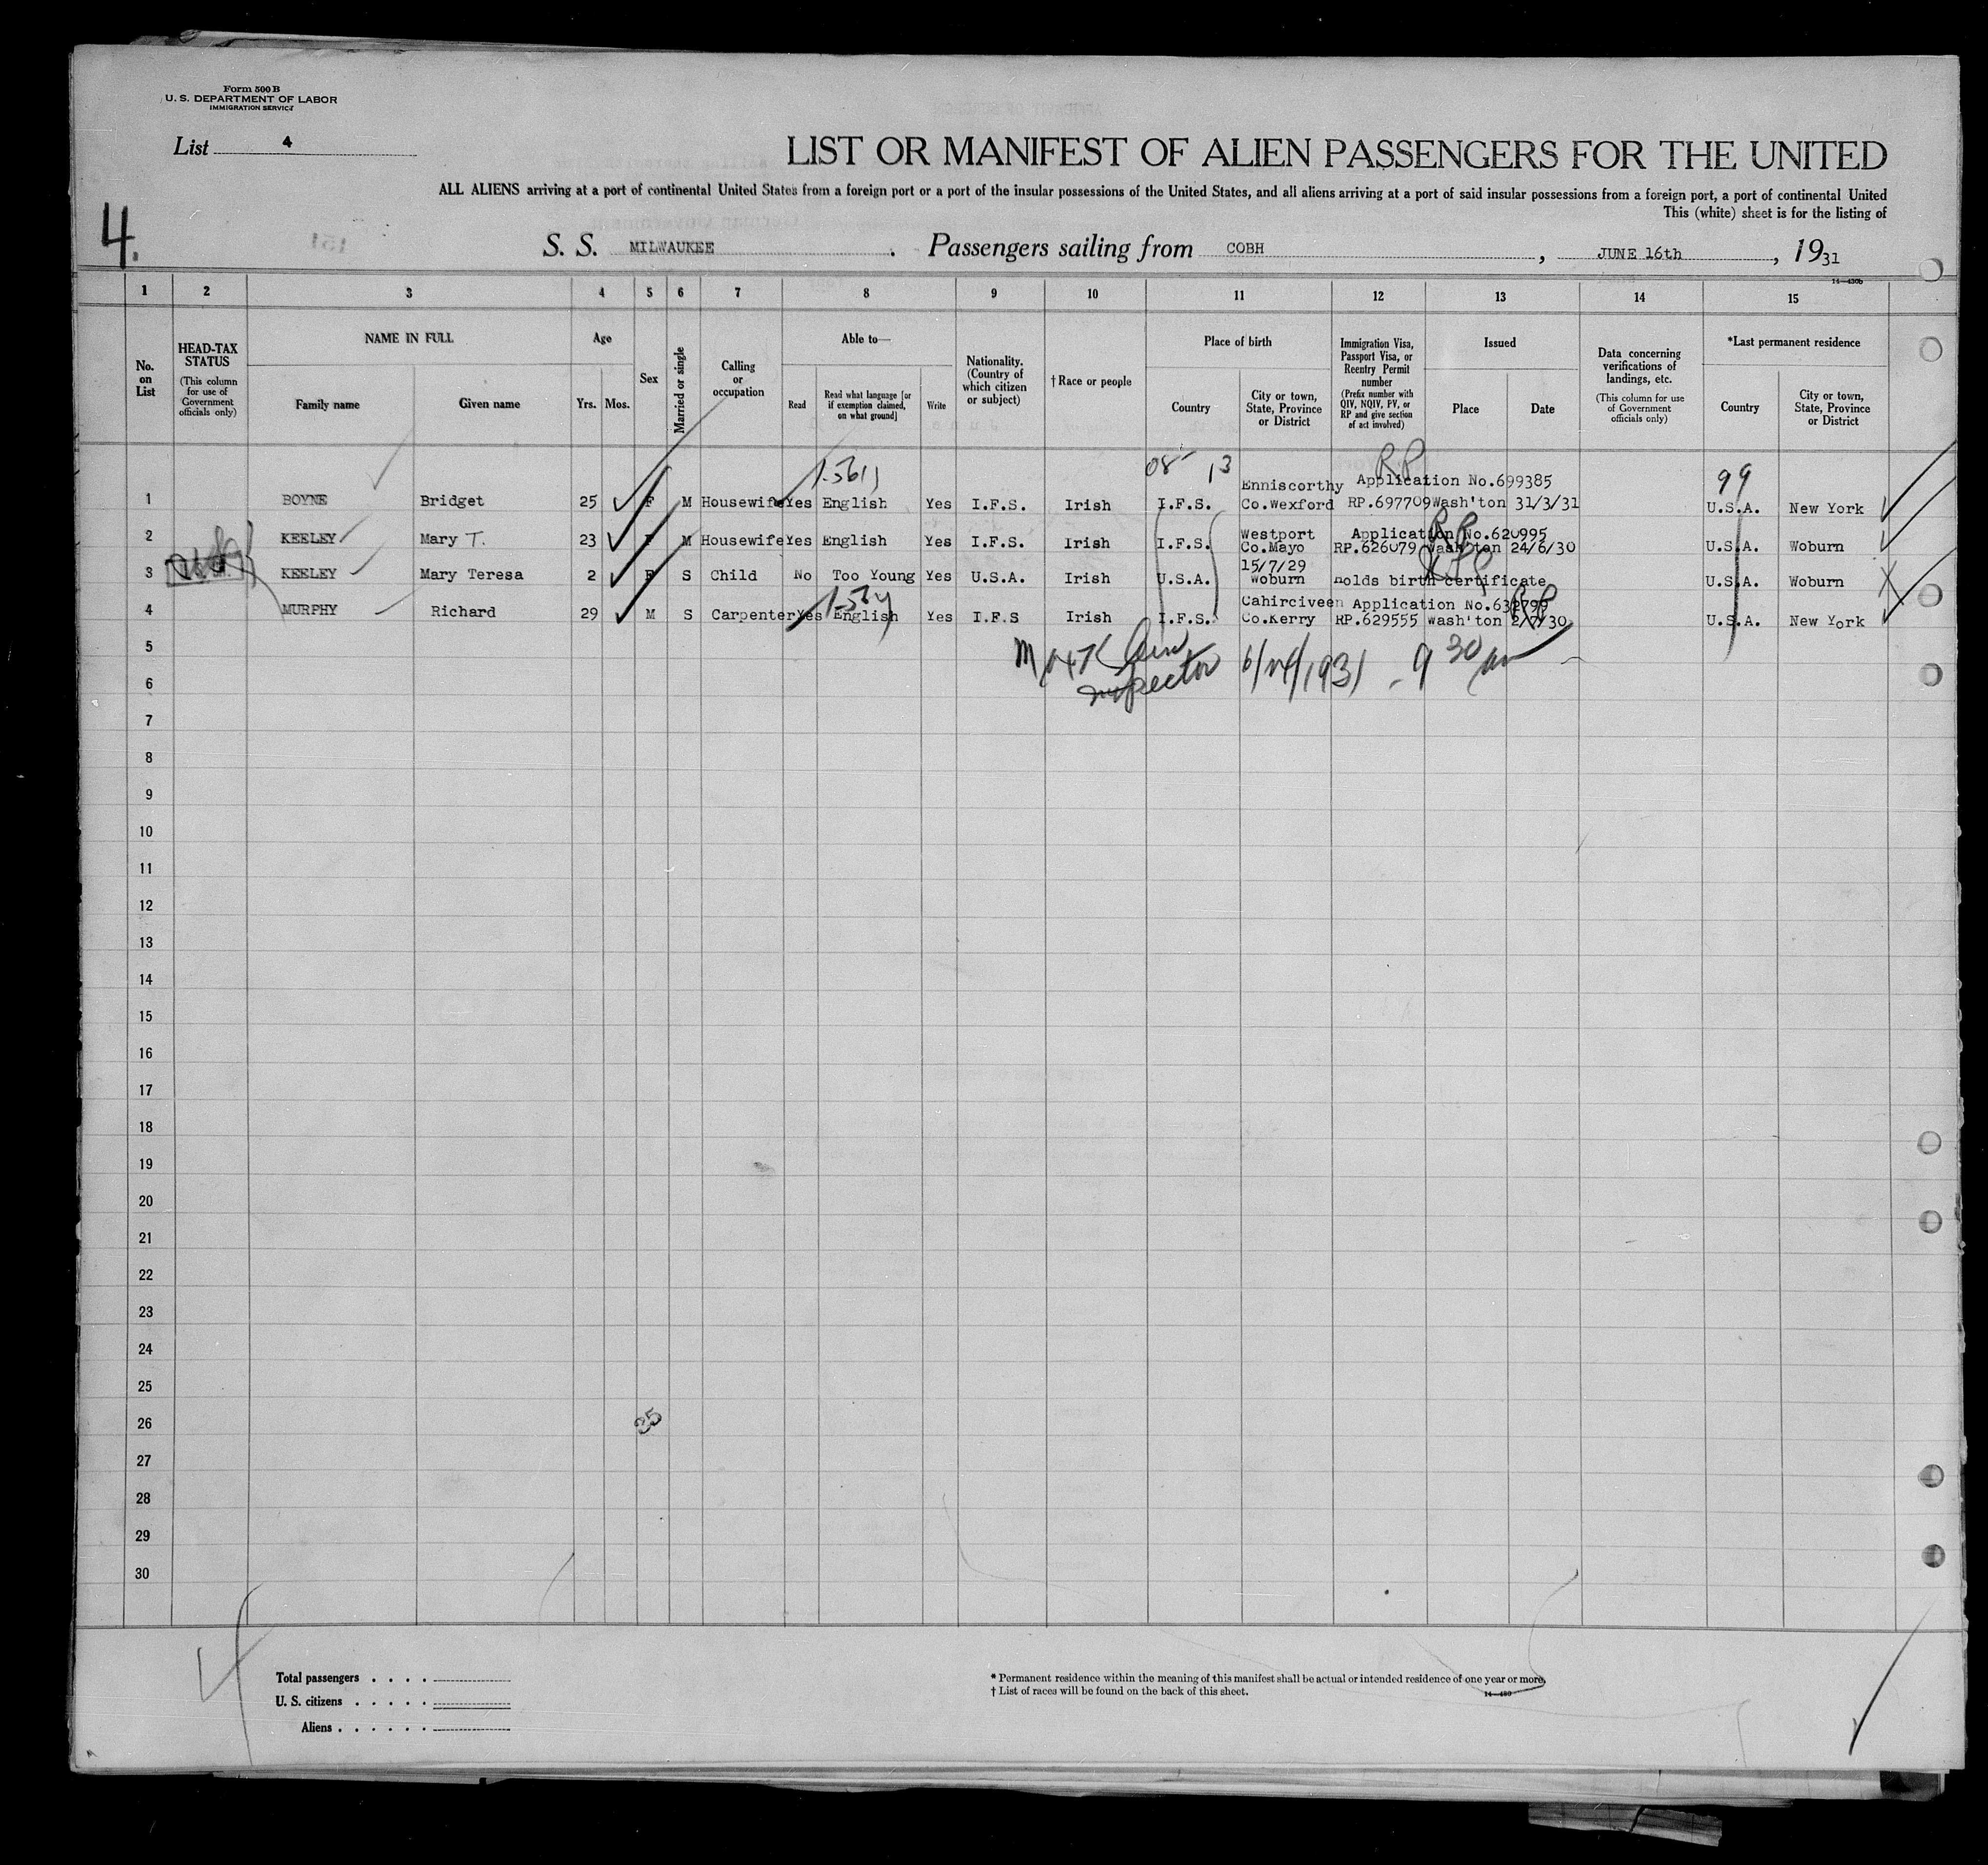 Form 500 B
U. S. DEPARTMENT OF LABOR
IMMIGRATION SERVICE
List 4
LIST OR MANIFEST OF ALIEN PASSENGERS FOR THE UNITED
ALL ALIENS arriving at a port of continental United States from a foreign port or a port of the insular possessions of the United States, and all aliens arriving at a port of said insular possessions from a foreign port, a port of continental United
This (white) sheet is for the listing of
4.
151
S. S. MILWAUKEE . Passengers sailing from COBH , JUNE 16th , 1931
14-430b
1 2 3 4 5 6 7 8 9 10 11 12 13 14 15
No. on List
HEAD-TAX STATUS
(This column for use of Government officials only)
NAME IN FULL
Family name
Given name
Age
Yrs. Mos.
Sex
Married or single
Calling or occupation
Able to—
Read
Read what language [or if exemption claimed, on what ground]
Write
Nationality. (Country of which citizen or subject)
† Race or people
Place of birth
Country
City or town, State, Province or District
Immigration Visa, Passport Visa, or Reentry Permit number
(Prefix number with QIV, NQIV, PV, or RP and give section of act involved)
Issued
Place
Date
Data concerning verifications of landings, etc.
(This column for use of Government officials only)
*Last permanent residence
Country
City or town, State, Province or District
08 13 RP 99
Enniscorthy Application No.699385
1 BOYNE Bridget 25 F M Housewife Yes English Yes I.F.S. Irish I.F.S. Co.Wexford RP.697709 Wash'ton 31/3/31 U.S.A. New York
RP
Westport Application No.620995
2 KEELEY Mary T. 23 F M Housewife Yes English Yes I.F.S. Irish I.F.S. Co.Mayo RP.626079 Wash'ton 24/6/30 U.S.A. Woburn
15/7/29
3 KEELEY Mary Teresa 2 F S Child No Too Young Yes U.S.A. Irish U.S.A. Woburn holds birth certificate U.S.A. Woburn
RP
Cahirciveen Application No.632799
4 MURPHY Richard 29 M S Carpenter Yes English Yes I.F.S Irish I.F.S. Co.Kerry RP.629555 Wash'ton 2/7/30 U.S.A. New York
5
Inspector 1931 - 9 30 am
6
7
8
9
10
11
12
13
14
15
16
17
18
19
20
21
22
23
24
25
26
35
27
28
29
30
Total passengers . . . .
U. S. citizens . . . . .
Aliens . . . . . .
* Permanent residence within the meaning of this manifest shall be actual or intended residence of one year or more.
† List of races will be found on the back of this sheet.
14-430